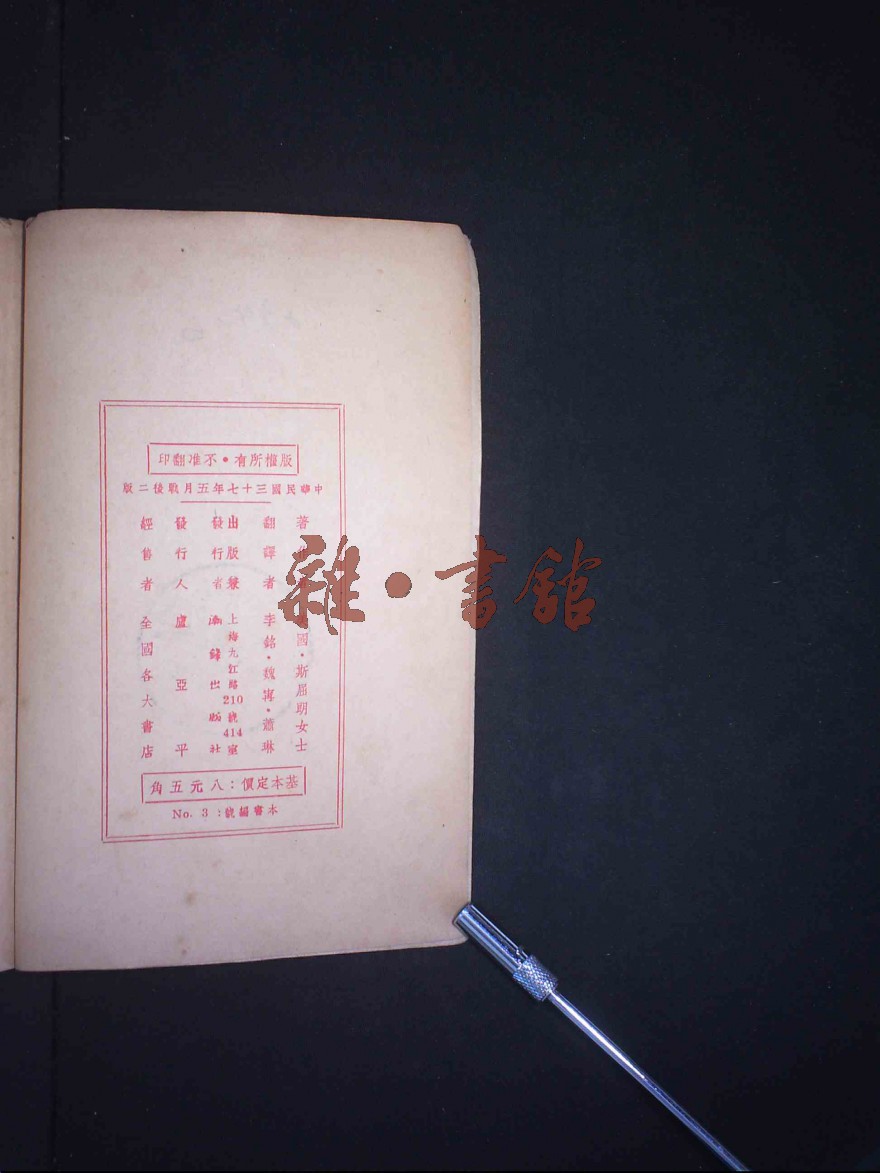 版權所有•不准翻印
中華民國三十七年五月戰後二版
著 國•斯屈朗女士
翻譯者 李銘•魏甯•蕭琳
出版兼 上海九江路210號414室
發行者 出版社
發行人 盧亞平
經售者 全國各大書店
基本定價：八元五角
本書編號：No. 3
雜•書館